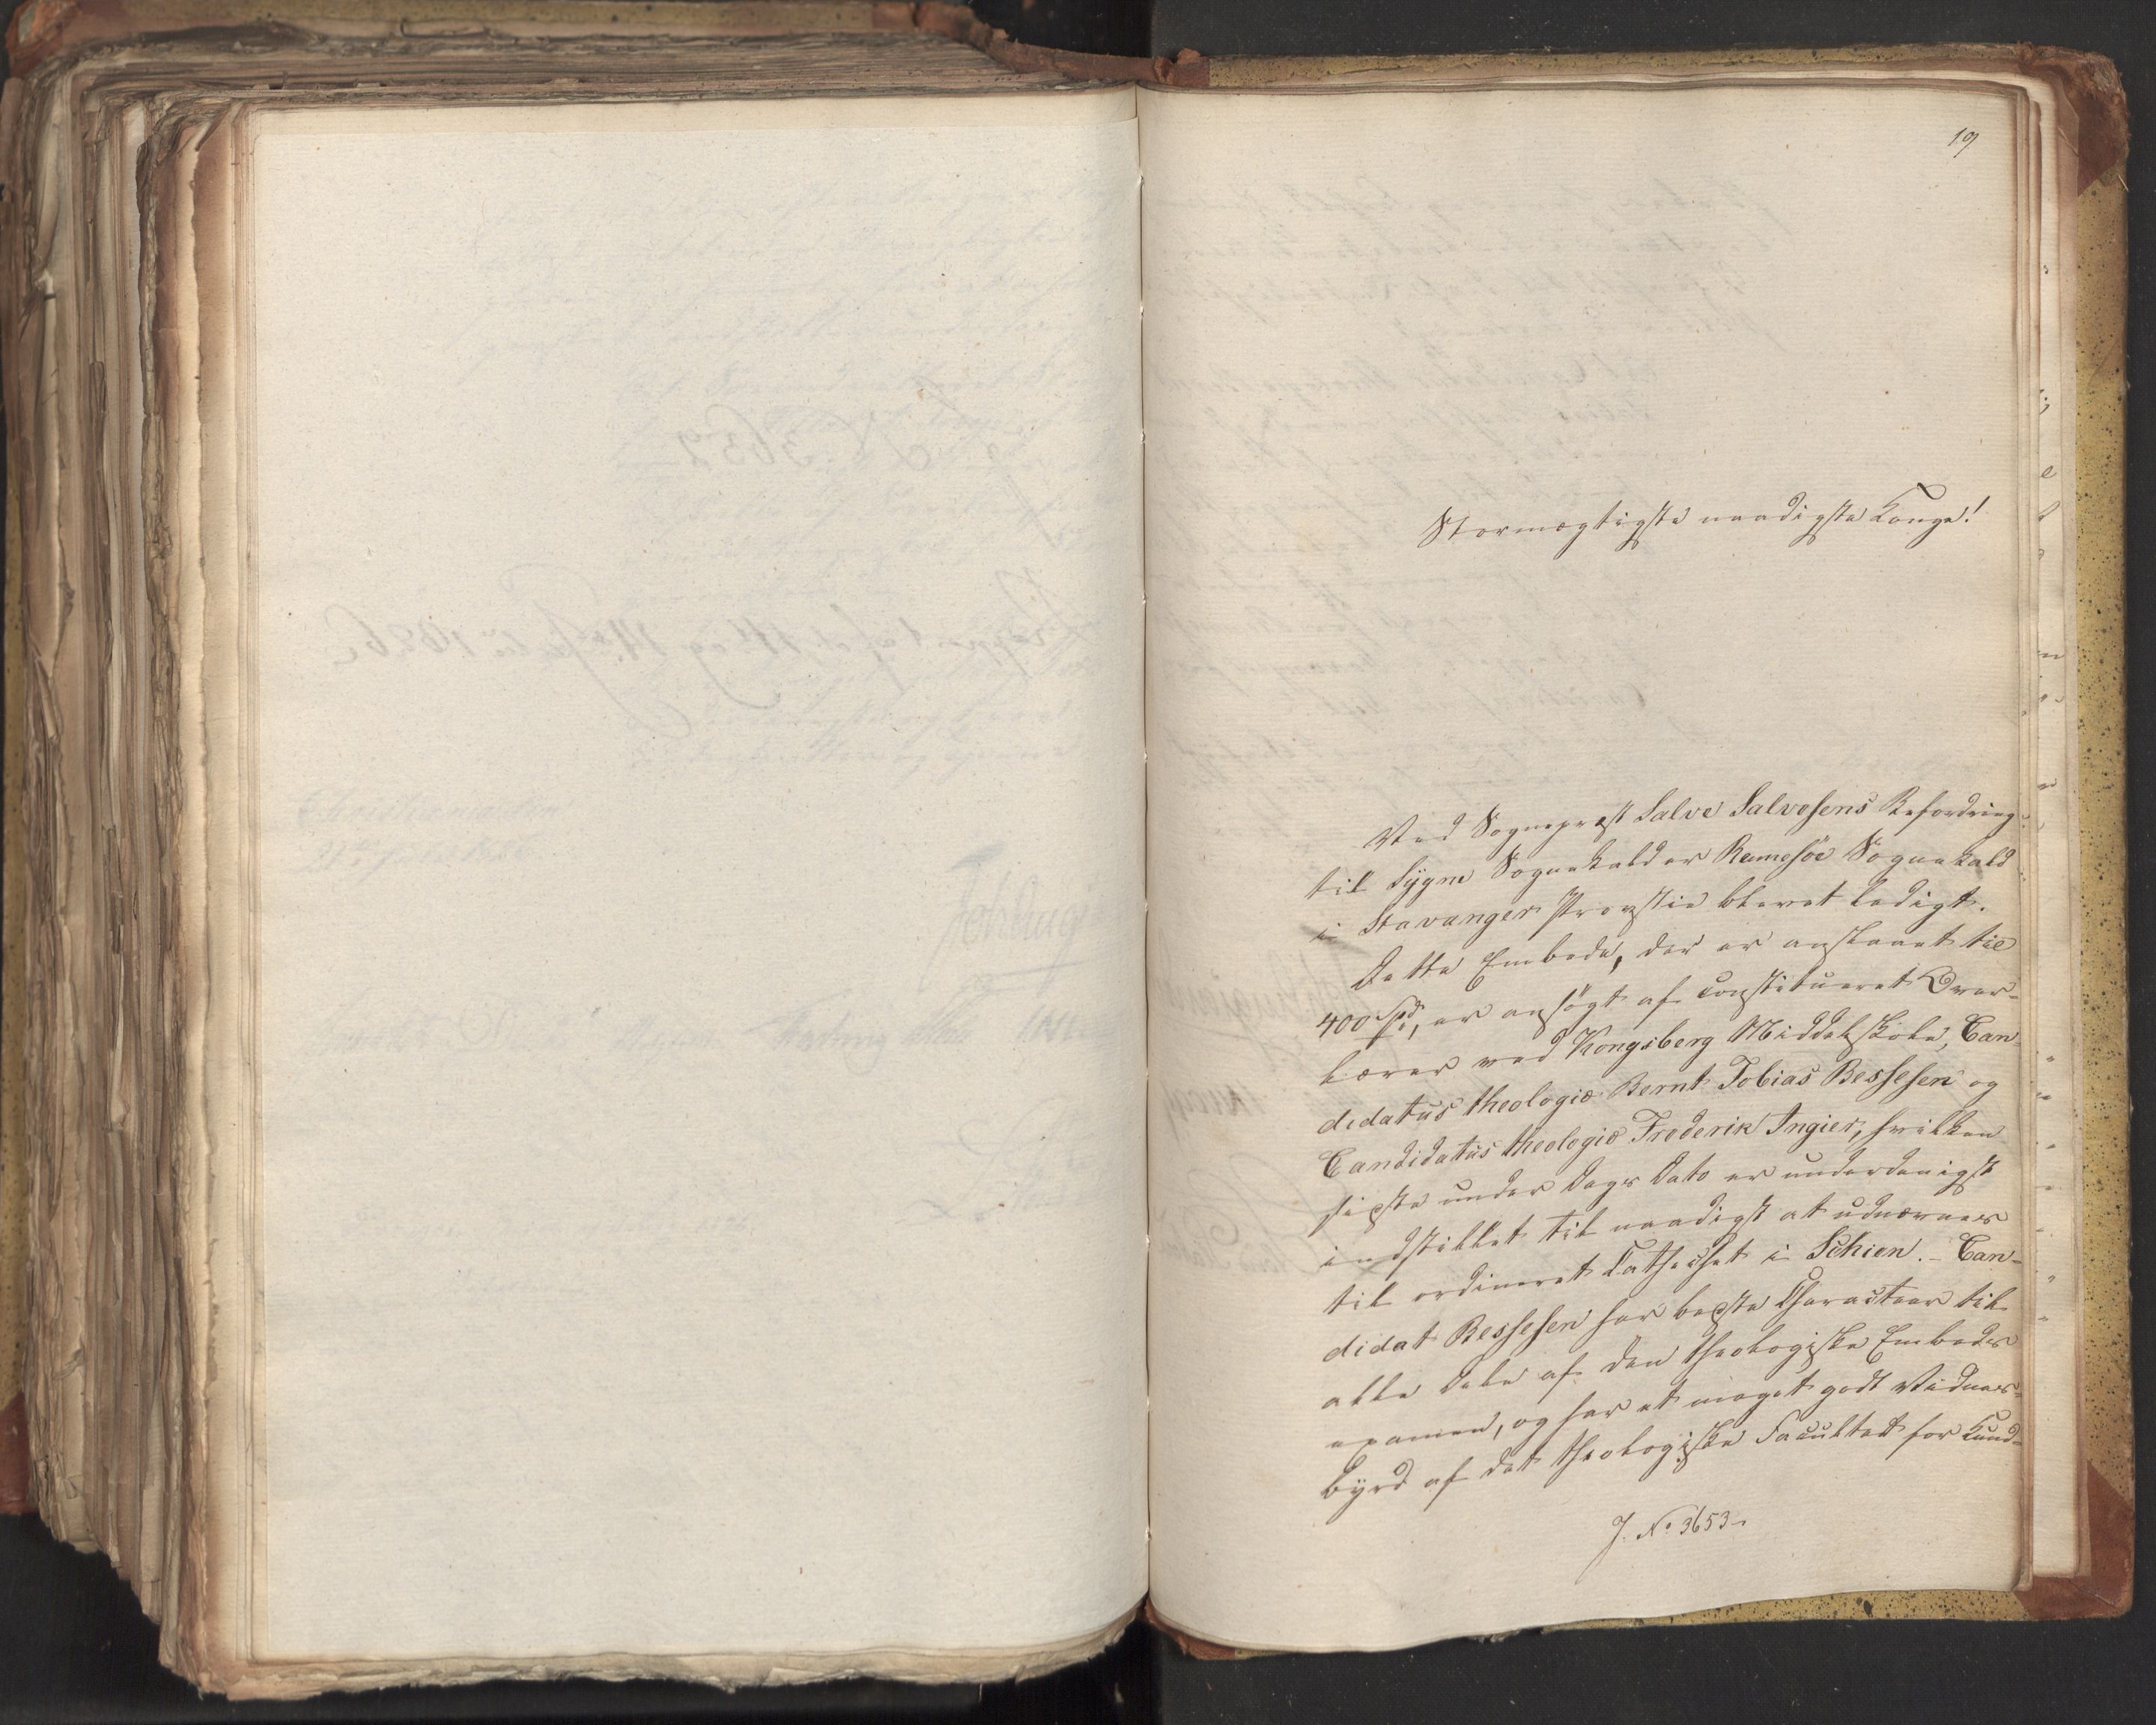 19
Stormægtigste naadigste Konge!
Ved Sogneprest Salve Salvesens Befordring
til Lÿgne Sognekald er Rennesöe Sognekald
i Stavanger Provstie blevet ledigt.
Dette Embede, der er anslaaet til
400 Spd, er ansögt af constitueret Over-
lærer ved Kongsberg Middelskole, Can-
didatus theologiæ Bernt Tobias Bessesen og
Candidatus theologiæ Frederik Ingier, hvilken
sidste under Dags Dato er underdanigst
indstillet til naadigst at udnævnes
til ordineret Catechet i Schien. - Can-
didat Bessesen har bedste Character til
alle Dele af den theologiske Embeds
examen, og har et meget godt Vidnes-
byrd af det theologiske Facultet for Kund-
J. No 3653